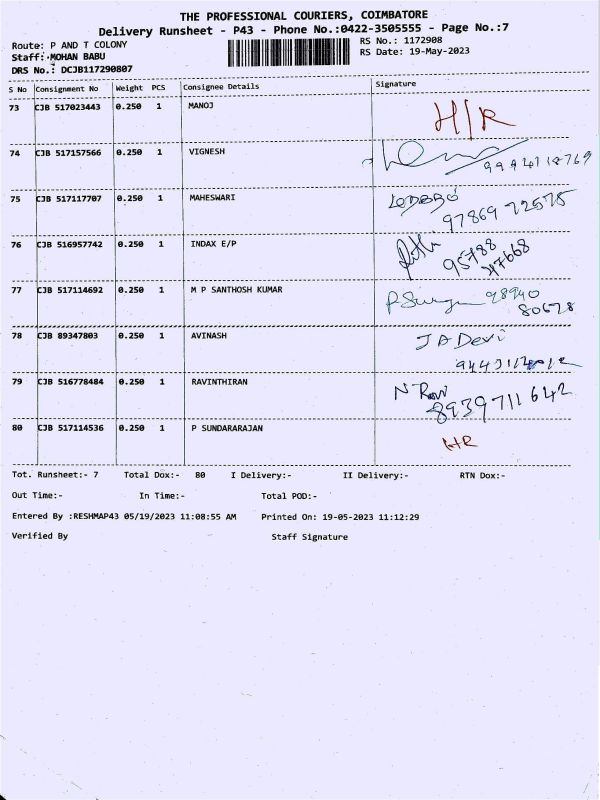 THE PROFESSIONAL COURIERS, COIMBATORE
Delivery Runsheet - P43 - Phone No.:0422-3505555 - Page No.:7
Route: P AND T COLONY
RS No.: 1172908
Staff: MOHAN BABU
RS Date: 19-May-2023
DRS No.: DCJB117290807
S No Consignment No Weight PCS Consignee Details Signature
73 CJB 517023443 0.250 1 MANOJ H/R
74 CJB 517157566 0.250 1 VIGNESH
75 CJB 517117707 0.250 1 MAHESWARI 97869 72575
76 CJB 516957742 0.250 1 INDAX E/P 95788
47668
77 CJB 517114692 0.250 1 M P SANTHOSH KUMAR 98940
80678
78 CJB 89347803 0.250 1 AVINASH J A Devi
79 CJB 516778484 0.250 1 RAVINTHIRAN N Ravi
8939711642
80 CJB 517114536 0.250 1 P SUNDARARAJAN HR
Tot. Runsheet:- 7 Total Dox:- 80 I Delivery:- II Delivery:- RTN Dox:-
Out Time:- In Time:- Total POD:-
Entered By :RESHMAP43 05/19/2023 11:08:55 AM Printed On: 19-05-2023 11:12:29
Verified By Staff Signature